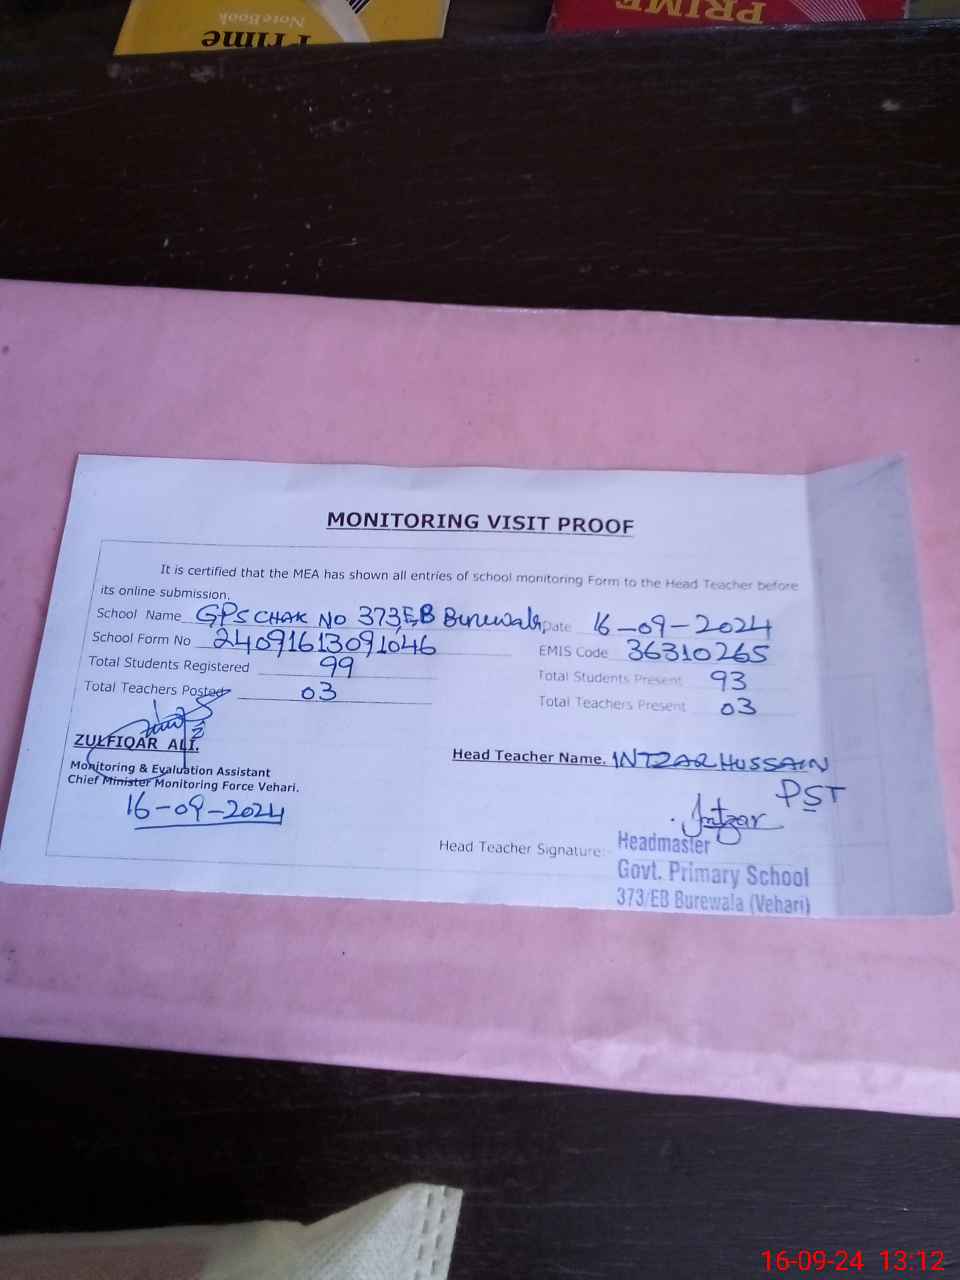 NoteBook
Prime
PRIME
MONITORING VISIT PROOF
It is certified that the MEA has shown all entries of school monitoring Form to the Head Teacher before
its online submission.
School Name GPS CHAK NO 373/EB Burewala Date 16-09-2024
School Form No 24091613091046 EMIS Code 36310265
Total Students Registered 99 Total Students Present 93
Total Teachers Posted 03 Total Teachers Present 03
ZULFIQAR ALI.
Monitoring & Evaluation Assistant
Chief Minister Monitoring Force Vehari.
16-09-2024
Head Teacher Name. INTZAR HUSSAIN
PST
Intzar
Head Teacher Signature:-
Headmaster
Govt. Primary School
373/EB Burewala (Vehari)
16-09-24 13:12